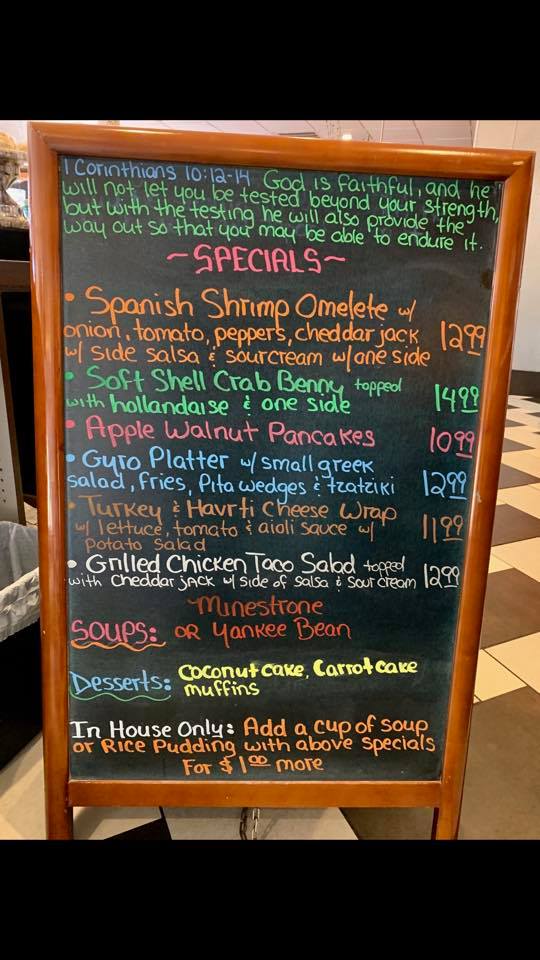 1 Corinthians 10:12-14 God is faithful, and he
will not let you be tested beyond your strength,
but with the testing he will also provide the
way out so that you may be able to endure it.
~SPECIALS~
• Spanish Shrimp Omelete w/
onion, tomato, peppers, cheddar jack 12 99
w/ side salsa & sourcream w/one side
• Soft Shell Crab Benny topped
with hollandaise & one side 14 99
• Apple Walnut Pancakes 10 99
• Gyro Platter w/ small greek
salad, fries, Pita wedges & tzatziki 12 99
• Turkey & Havrti Cheese Wrap
w/ lettuce, tomato & aioli sauce w/ 11 99
Potato Salad
• Grilled Chicken Taco Salad topped
with cheddar jack w/ side of salsa & sour cream 12 99
Minestrone
Soups: OR Yankee Bean
Desserts: Coconut cake, Carrot cake
muffins
In House Only: Add a cup of soup
or Rice Pudding with above specials
For $1 00 more